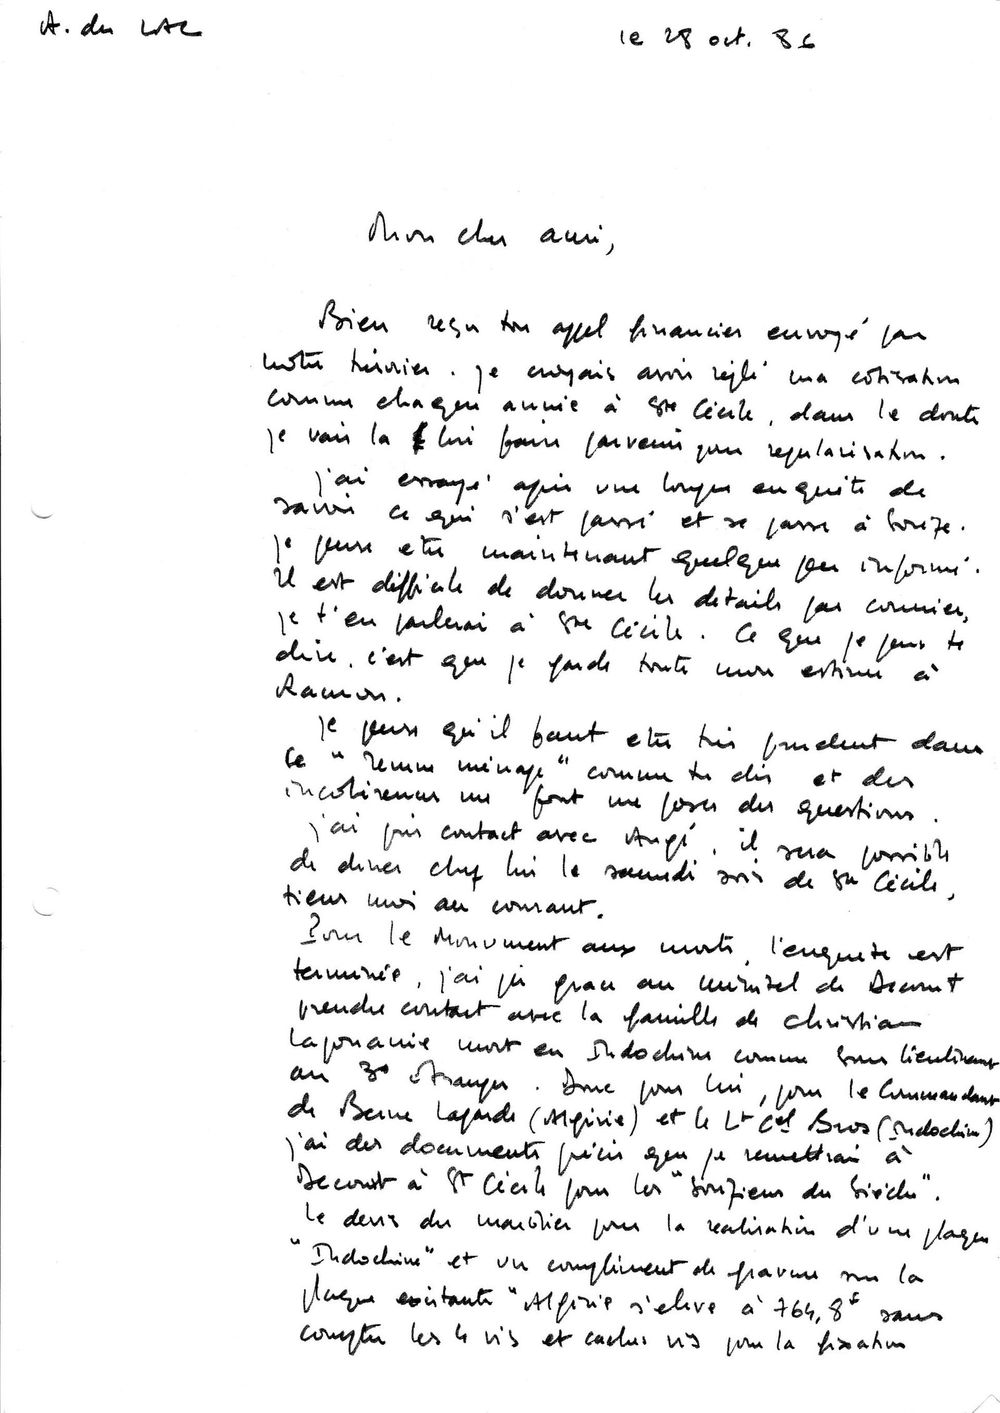 A. du LAC
le 28 oct. 86
Mon cher ami,
Bien reçu ton appel financier envoyé par
notre trésorier. je croyais avoir réglé ma cotisation
comme chaque année à Ste Cécile, dans le doute
je vais la lui faire parvenir pour régularisation.
j'ai essayé après une longue enquête de
savoir ce qui s'est passé et se passe à Sorèze.
je pense etre maintenant quelque peu informé.
Il est difficile de donner les détails par courrier,
je t'en parlerai à Ste Cécile. Ce que je peux te
dire, c'est que je garde toute mon estime à
Ramon.
je pense qu'il faut etre très prudent dans
ce "remue ménage" comme tu dis et des
incohérences me font me poser des questions.
j'ai pris contact avec Augé, il sera possible
de diner chez lui le samedi soir de Ste Cécile,
tiens moi au courant.
Pour le Monument aux morts, l'enquete est
terminée, j'ai pu grace au minitel de Decomt
prendre contact avec la famille de Christian
Laponarie mort en Indochine comme sous lieutenant
au 3e étranger. Donc pour lui, pour le Commandant
de Berne Lagarde (Algérie) et le Lt Cel Bros (Indochine)
j'ai des documents précis que je remettrai à
Decomt à St Cécile pour les "Soréziens du Siècle".
le devis du marbrier pour la réalisation d'une plaque
"Indochine" et un complément de gravure sur la
plaque existante "Algérie s'elève à 764,8f sans
compter les 4 vis et caches vis pour la fixation